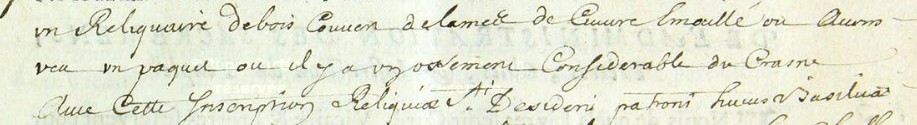 un Reliquaire debois Couvert delamee de Cuivre Emaillé ou avons
veu un paquet ou il y a un ossement Considerable du Crasne
avec Cette Inscription Reliquiæ Sti Desiderii patroni huius Basilicæ